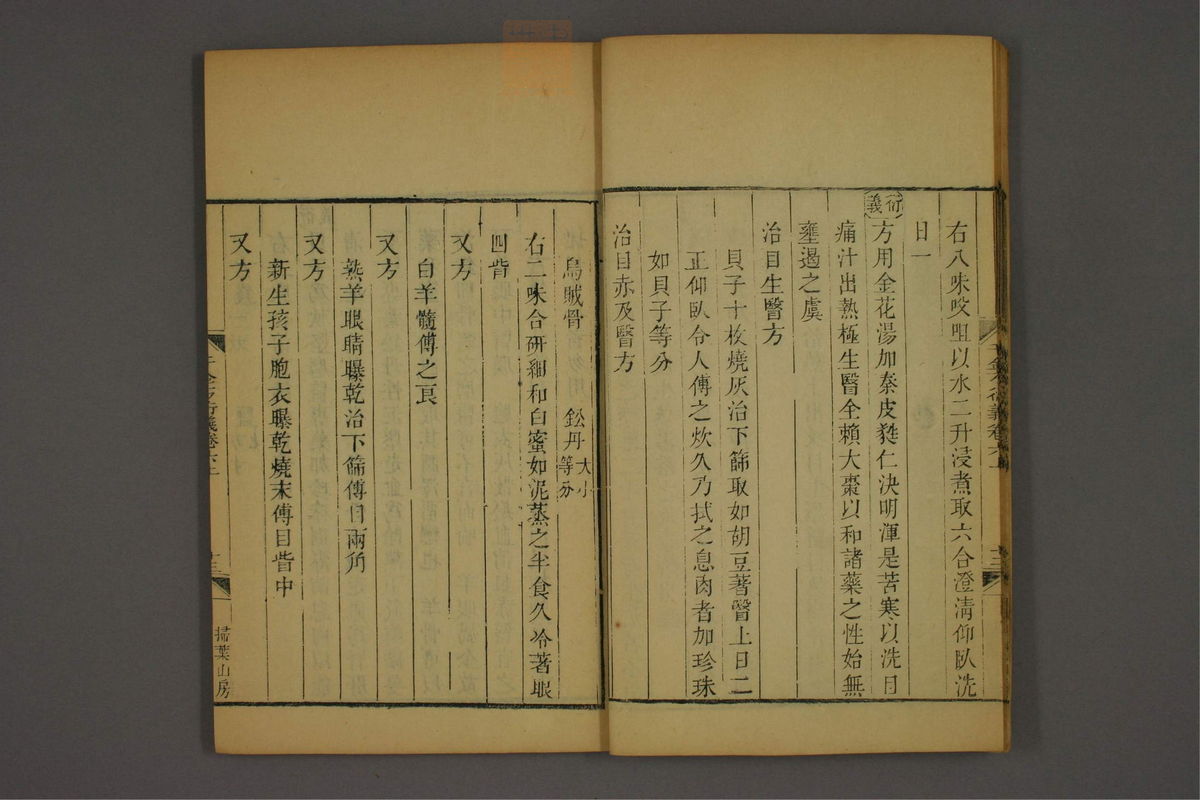 右八味㕮咀以水二升浸煮取六合澄淸仰臥洗
日一
衍義
方用金花湯加秦皮蕤仁決明渾是苦寒以洗目
痛汁出熱極生瞖全賴大棗以和諸藥之性始無
壅遏之虞
治目生瞖方
貝子十枚燒灰治下篩取如胡豆著瞖上日二
正仰臥令人傅之炊久乃拭之息肉者加珍珠
如貝子等分
治目赤及瞖方
烏賊骨 鉛丹大小等分
右二味合研細和白蜜如泥蒸之半食久冷著眼
四眥
又方
白羊髓傅之良
又方
熟羊眼睛曝乾治下篩傅目兩角
又方
新生孩子胞衣曝乾燒末傅目眥中
又方
千金方衍義卷六上
十三
掃葉山房